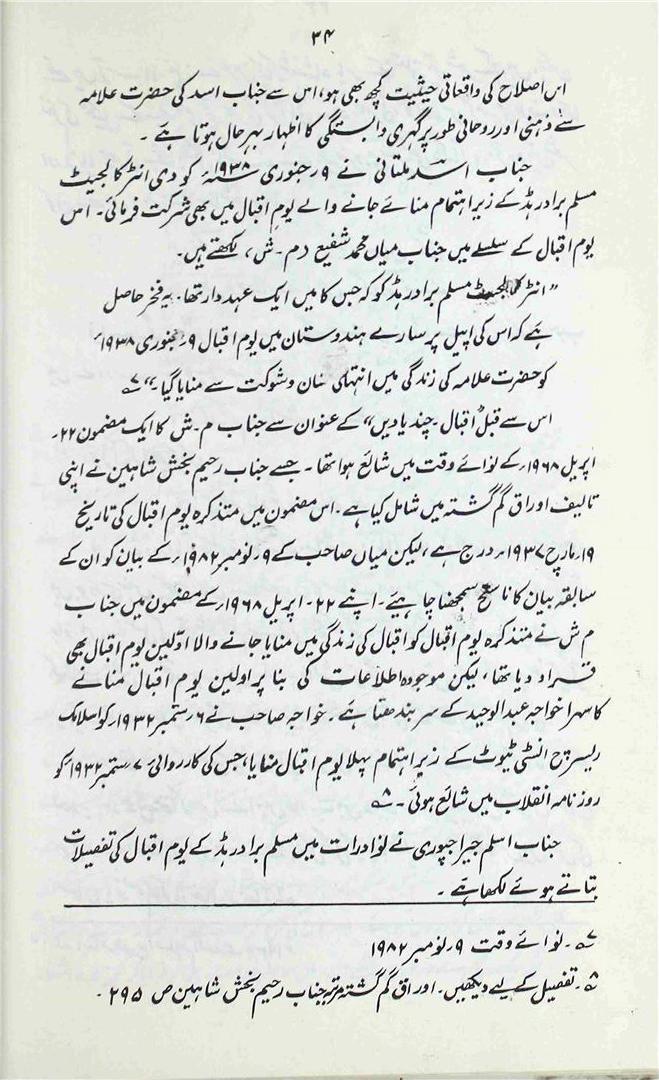 ۳۴
اس اصلاح کی واقعاتی حیثیت کچھ بھی ہو، اس سے جناب اسد کی حضرت علامہ
سے ذہنی اور روحانی طور پر گہری وابستگی کا اظہار بہرحال ہوتا ہے ۔
جناب اسد ملتانی نے ۹ر جنوری ۱۹۳۸ء کو دی انٹر کالجیٹ
مسلم برادرہڈ کے زیر اہتمام منائے جانے والے یوم اقبال میں بھی شرکت فرمائی۔ اس
یوم اقبال کے سلسلے میں جناب میاں محمد شفیع (م۔ش) لکھتے ہیں۔
"انٹر کالجیٹ مسلم برادرہڈ کو کہ جس کا میں ایک عہددار تھا۔ یہ فخر حاصل
ہے کہ اس کی اپیل پر سارے ہندوستان میں یوم اقبال ۹ر جنوری ۱۹۳۸ء
کو حضرت علامہ کی زندگی میں انتہائی شان و شوکت سے منایا گیا۔" ؎۷
اس سے قبل "اقبال۔ چند یادیں" کے عنوان سے جناب م۔ش کا ایک مضمون ۲۲۔
اپریل ۱۹۶۸ء کے نوائے وقت میں شائع ہوا تھا۔ جسے جناب رحیم بخش شاہین نے اپنی
تالیف اوراق گم گشتہ میں شامل کیا ہے۔ اس مضمون میں متذکرہ یوم اقبال کی تاریخ
۱۹ر مارچ ۱۹۳۷ء درج ہے، لیکن میاں صاحب کے ۹ر نومبر ۱۹۸۲ء کے بیان کو ان کے
سابقہ بیان کا ناسخ سمجھنا چاہیئے۔ اپنے ۲۲۔ اپریل ۱۹۶۸ء کے مضمون میں جناب
م ش نے متذکرہ یوم اقبال کو اقبال کی زندگی میں منایا جانے والا اوّلین یوم اقبال بھی
قرار دیا تھا، لیکن موجودہ اطلاعات کی بنا پر اولین یوم اقبال منانے
کا سہرا خواجہ عبدالوحید کے سر بندھتا ہے۔ خواجہ صاحب نے ۶ر ستمبر ۱۹۳۲ء کو اسلامک
ریسرچ انسٹی ٹیوٹ کے زیر اہتمام پہلا یوم اقبال منایا، جس کی کارروائی ۷ر ستمبر ۱۹۳۲ء کو
روزنامہ انقلاب میں شائع ہوئی۔ ؎۸
جناب اسلم جیراجپوری نے نوادرات میں مسلم برادرہڈ کے یوم اقبال کی تفصیلات
بتاتے ہوئے لکھا ہے ۔
؎۷۔ نوائے وقت ۹ر نومبر ۱۹۸۲
؎۸۔ تفصیل کے لیے دیکھیں۔ اوراق گم گشتہ مرتبہ جناب رحیم بخش شاہین ص ۲۹۵ ۔